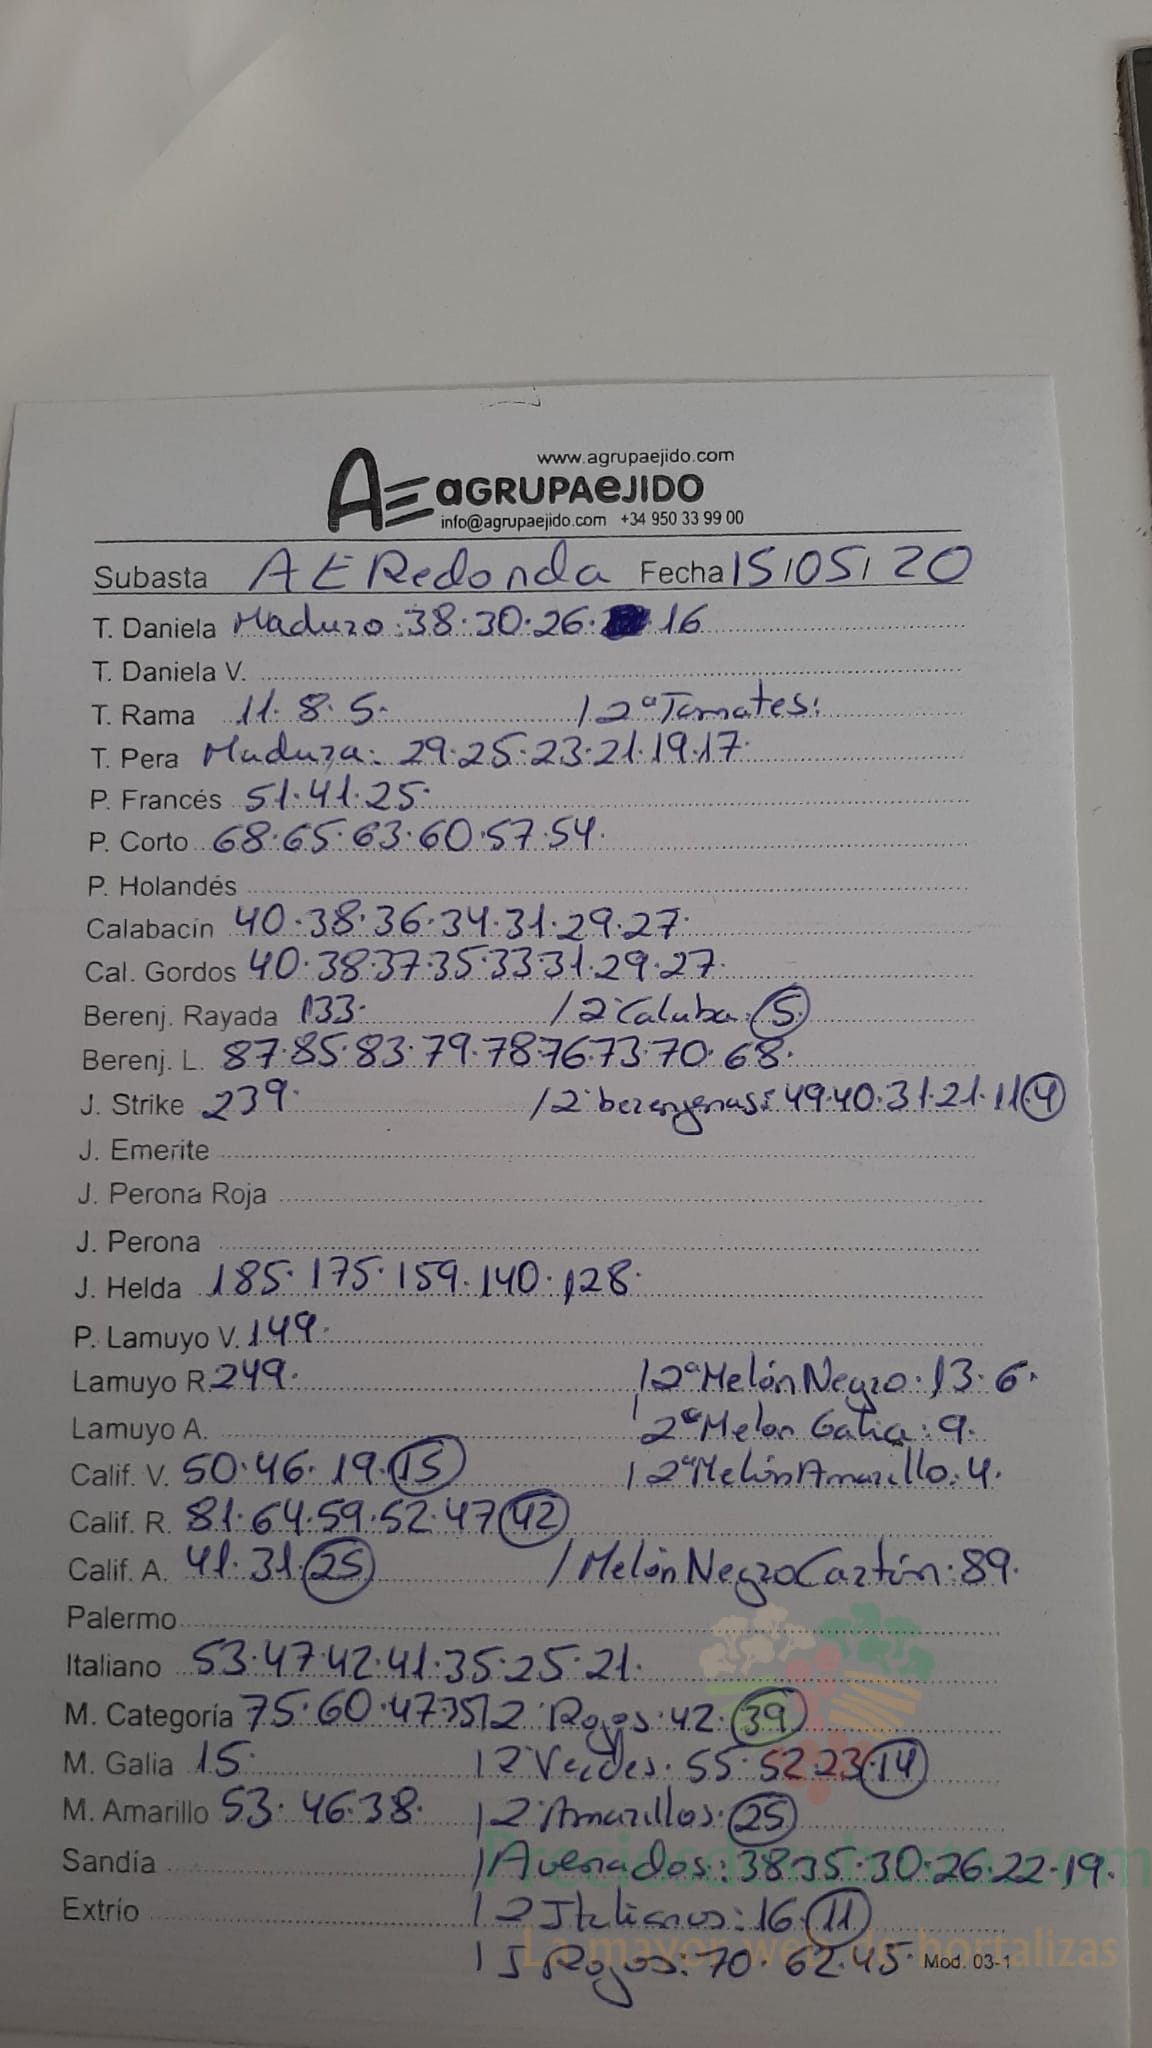 www.agrupaejido.com
AE aGRUPAeJIDO
info@agrupaejido.com +34 950 33 99 00
Subasta AE Redonda Fecha 15/05/20
T. Daniela Maduro: 38·30·26· 16
T. Daniela V.
T. Rama 11·8·5· /2ª Tomates:
T. Pera Madura: 29·25·23·21·19·17·
P. Francés 51·41·25·
P. Corto 68·65·63·60·57·54·
P. Holandés
Calabacín 40·38·36·34·31·29·27·
Cal. Gordos 40·38·37·35·33·31·29·27·
Berenj. Rayada 133· /2ª Calaba: 5
Berenj. L. 87·85·83·79·78·76·73·70·68·
J. Strike 239· /2ª berengenas: 49·40·31·21·11·4
J. Emerite
J. Perona Roja
J. Perona
J. Helda 185·175·159·140·128·
P. Lamuyo V. 149·
Lamuyo R 249· /2ª Melón Negro: 13·6·
Lamuyo A. /2ª Melon Galia: 9·
Calif. V. 50·46·19·15 /2ª Melón Amarillo: 4·
Calif. R. 81·64·59·52·47·42
Calif. A. 41·31·25 /Melón Negro Cartón: 89·
Palermo
Italiano 53·47·42·41·35·25·21·
M. Categoría 75·60·47·35 /2ª Rojos: 42·39
M. Galia 15· /2ª Verdes: 55·52·23·14
M. Amarillo 53·46·38· /2ª Amarillos: 25
Sandía /Avenados: 38·35·30·26·22·19·
Extrío /2 Italianos: 16·11
/S Rojos: 70·62·45· Mod. 03-1
La mayor web de hortalizas